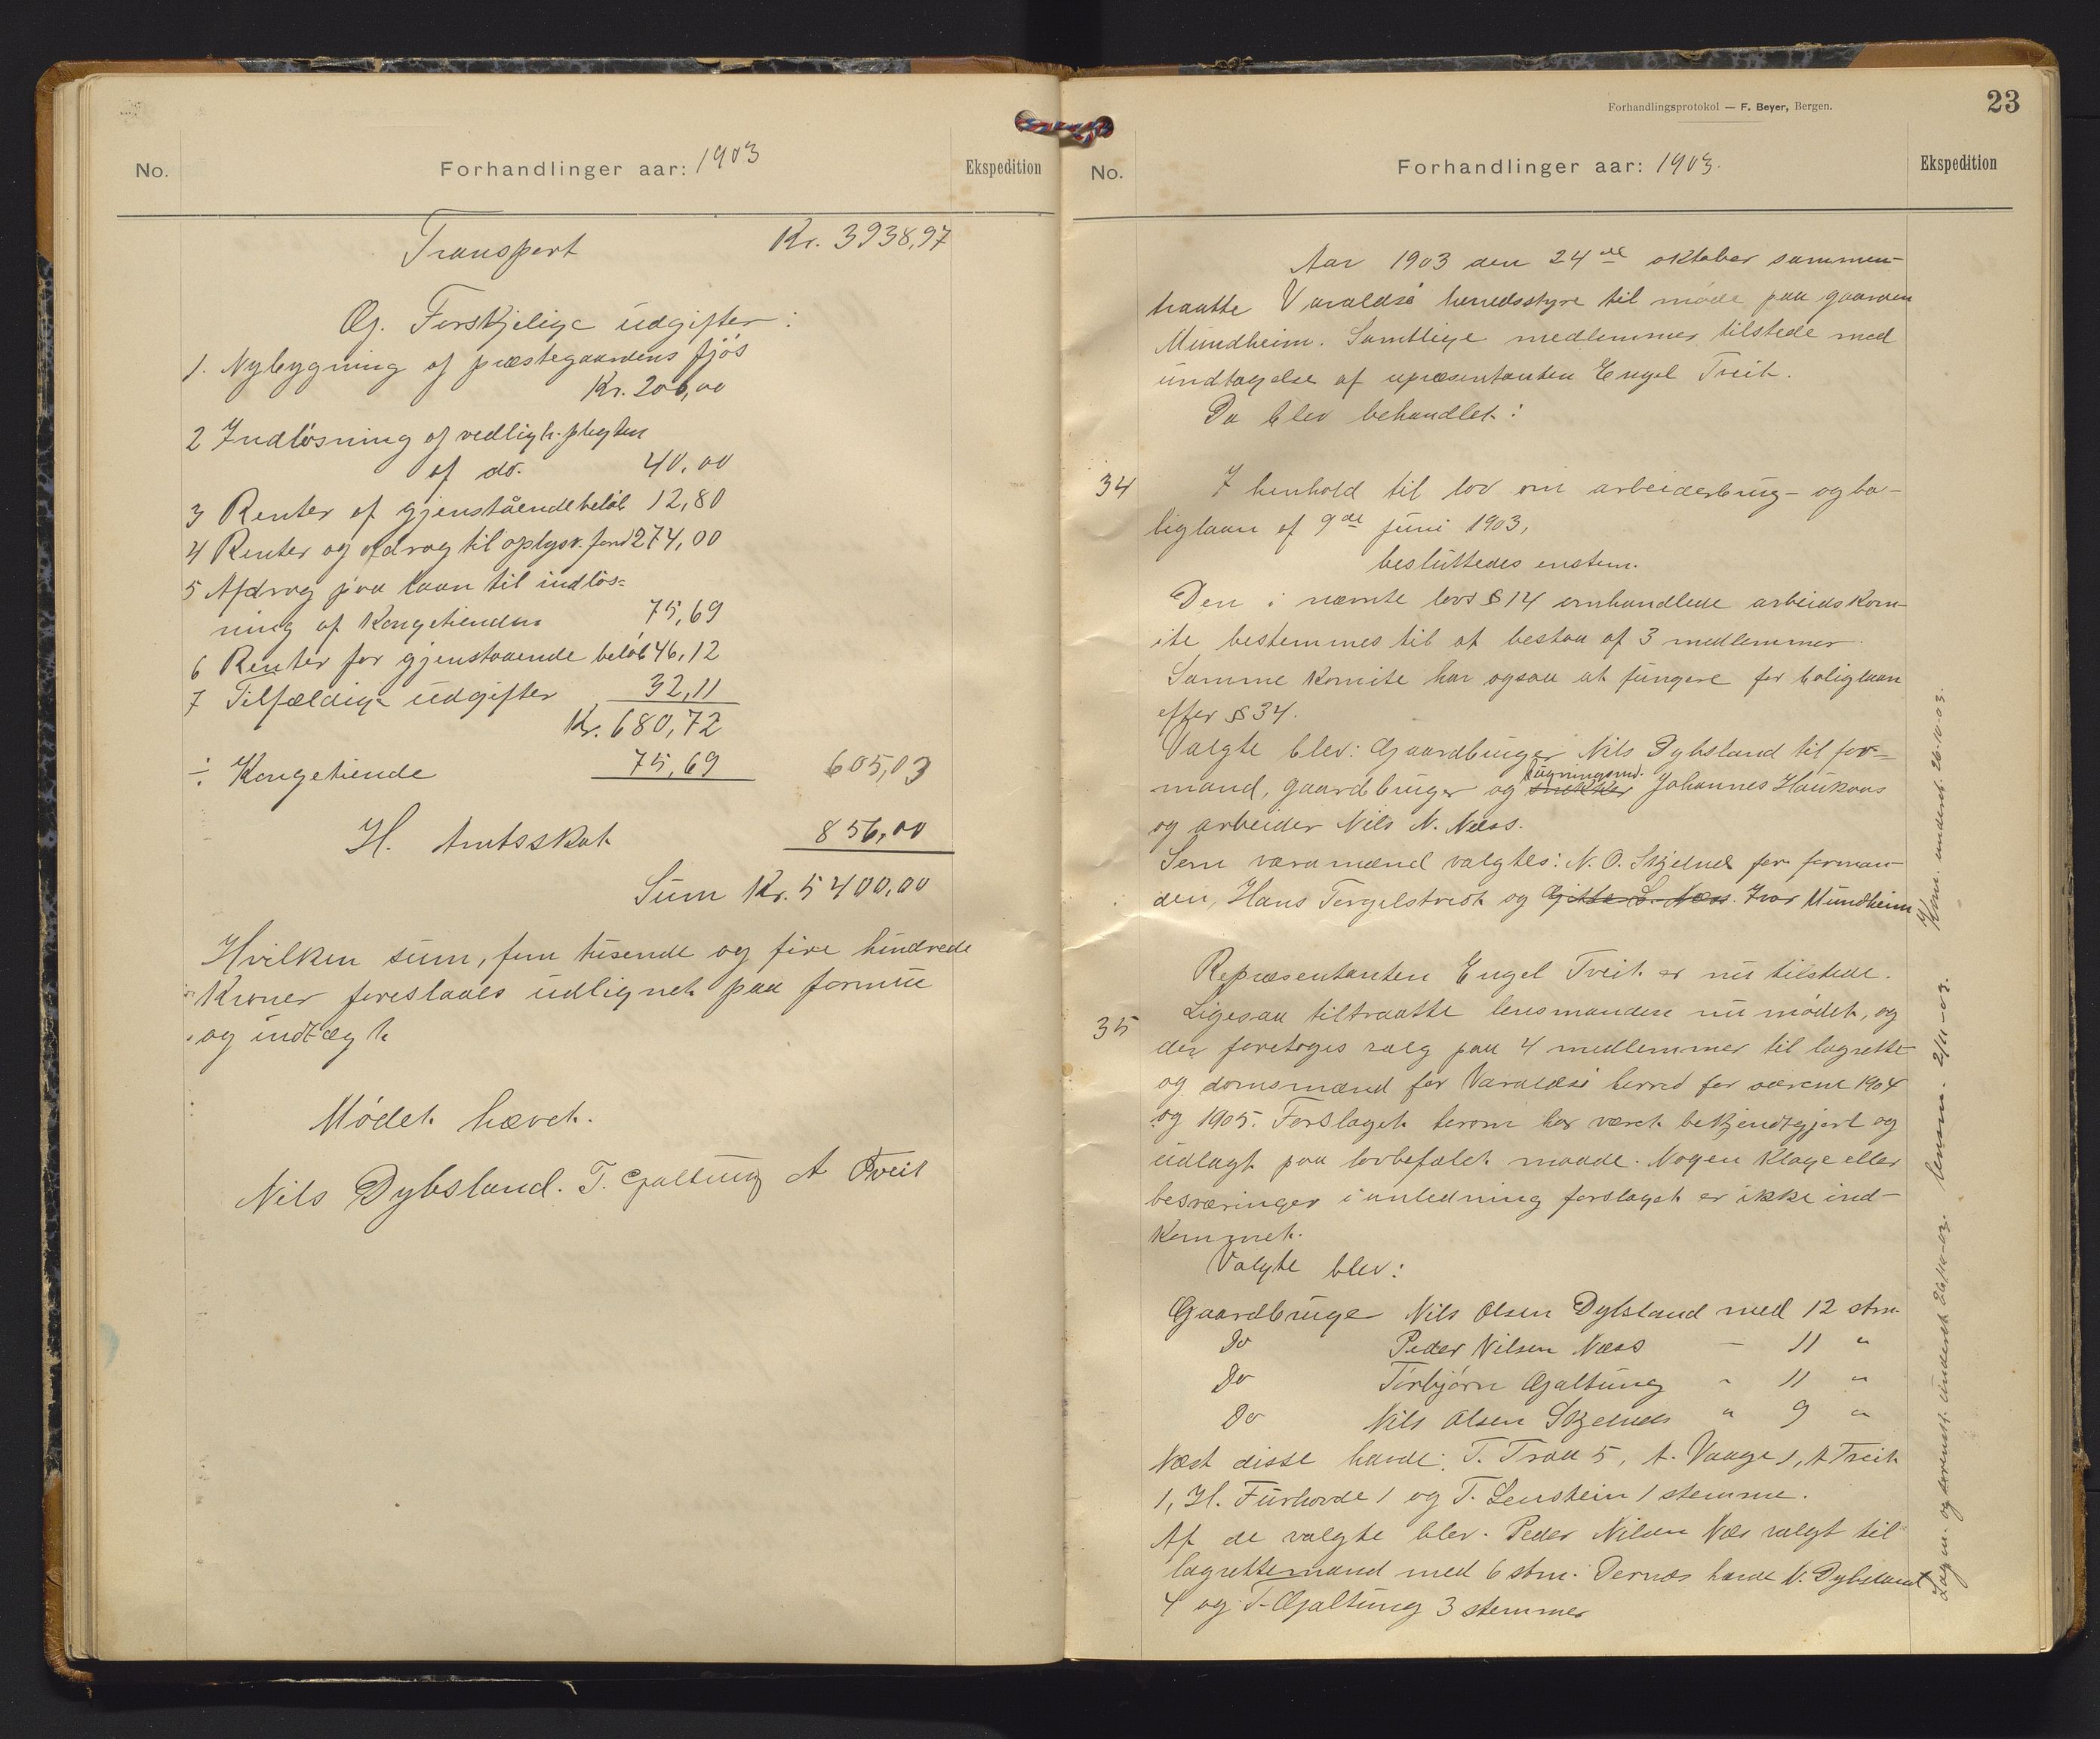 No.
Forhandlinger aar: 1903
Ekspedition
Transport Kr. 3938,97
G. Forskjelige udgifter:
1. Nybygning af præstegaardens fjös
Kr. 200,00
2 Indlösning af vedligh.plegten
af do. 40,00
3 Renter af gjenstående belöb 12,80
4 Renter og afdrag til oplysn.fond 274,00
5 Afdrag paa laan til indlös=
ning af Kongetienden 75,69
6 Renter for gjenstaaende belöb 46,12
7 Tilfældige udgifter 32,11
Kr. 680,72
÷ Kongetiende 75,69 605,03
H. Amtsskat 856,00
Sum Kr. 5400,00
Hvilken sum, fem tusende og fire hundrede
Kroner foreslaaes udlignet paa formue
og indtægt
Mödet hævet.
Nils Dybsland. T. Gjaltung A Tveit
Forhandlingsprotokol — F. Beyer, Bergen.
23
No.
Forhandlinger aar: 1903.
Ekspedition
Aar 1903 den 24de oktober sammen-
traatte Varaldsö herredsstyre til möde paa gaarden
Mundheim. Samtlige medlemmer tilstede med
undtagelse af repræsentanten Engel Tveit.
Da blev behandlet:
34 I henhold til lov om arbeiderbrug- og bo-
liglaan af 9de juni 1903,
besluttedes enstem.
Den i nævnte lovs § 14 omhandlede arbeidskom-
ite bestemmes til at bestaa af 3 medlemmer.
Samme komite har ogsaa at fungere for boliglaan
efter § 34.
Valgte blev: Gaardbruger Nils Dybsland til for=
mand, gaardbruger og bygningsmd. snekker Johannes Haukaas
og arbeider Nils N. Næss.
Som varamænd valgtes: N. O. Skjelnes for forman-
den, Hans Torgelstveit og Gitle S. Næss Ivar Mundheim
Repræsentanten Engel Tveit er nu tilstede.
35 Ligesaa tiltraatte lensmanden nu mödet, og
der foretoges valg paa 4 medlemmer til lagrette-
og domsmænd for Varaldsö herred for aarene 1904
og 1905. Forslaget herom har været bekjendtgjort og
udlagt paa lovbefalet maade. Nogen klage eller
besværinger i anledning forslaget er ikke ind-
kommet.
Valgte blev:
Gaardbruger Nils Olsen Dybsland med 12 stm.
Do Peder Nilsen Næss — 11 "
Do Torbjörn Gjaltung " 11 "
Do Nils Olsen Skjelnes " 9 "
Næst disse havde: T. Traa 5, A. Vaage 1, A Tveit
1, H. Furhovde 1 og T. Lenstein 1 stemme.
Af de valgte blev Peder Nilsen Næs valgt til
lagrettemand med 6 stm. Dernæs havde N. Dybsland
4 og T. Gjaltung 3 stemmer
Kom. underret. 26-10-03.
lensm. 2/11-03.
Lagm. og sorensk. underrett 26/10-03.